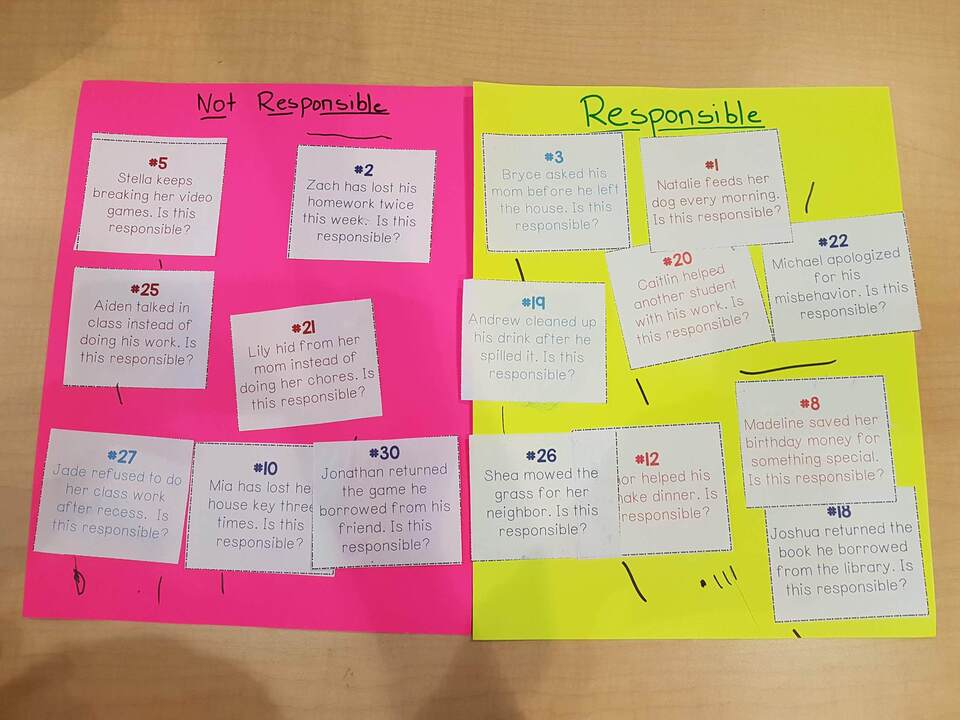 Not Responsible
#5
Stella keeps
breaking her video
games. Is this
responsible?
#2
Zach has lost his
homework twice
this week. Is this
responsible?
#25
Aiden talked in
class instead of
doing his work. Is
this responsible?
#21
Lily hid from her
mom instead of
doing her chores. Is
this responsible?
#27
Jade refused to do
her class work
after recess. Is
this responsible?
#10
Mia has lost he
house key three
times. Is this
responsible?
#30
Jonathan returned
the game he
borrowed from his
friend. Is this
responsible?
Responsible
#3
Bryce asked his
mom before he left
the house. Is this
responsible?
#1
Natalie feeds her
dog every morning.
Is this responsible?
#20
Caitlin helped
another student
with his work. Is
this responsible?
#22
Michael apologized
for his
misbehavior. Is this
responsible?
#19
Andrew cleaned up
his drink after he
spilled it. Is this
responsible?
#8
Madeline saved her
birthday money for
something special.
Is this responsible?
#26
Shea mowed the
grass for her
neighbor. Is this
responsible?
#12
or helped his
ake dinner. Is
responsible?
#18
Joshua returned the
book he borrowed
from the library. Is
this responsible?